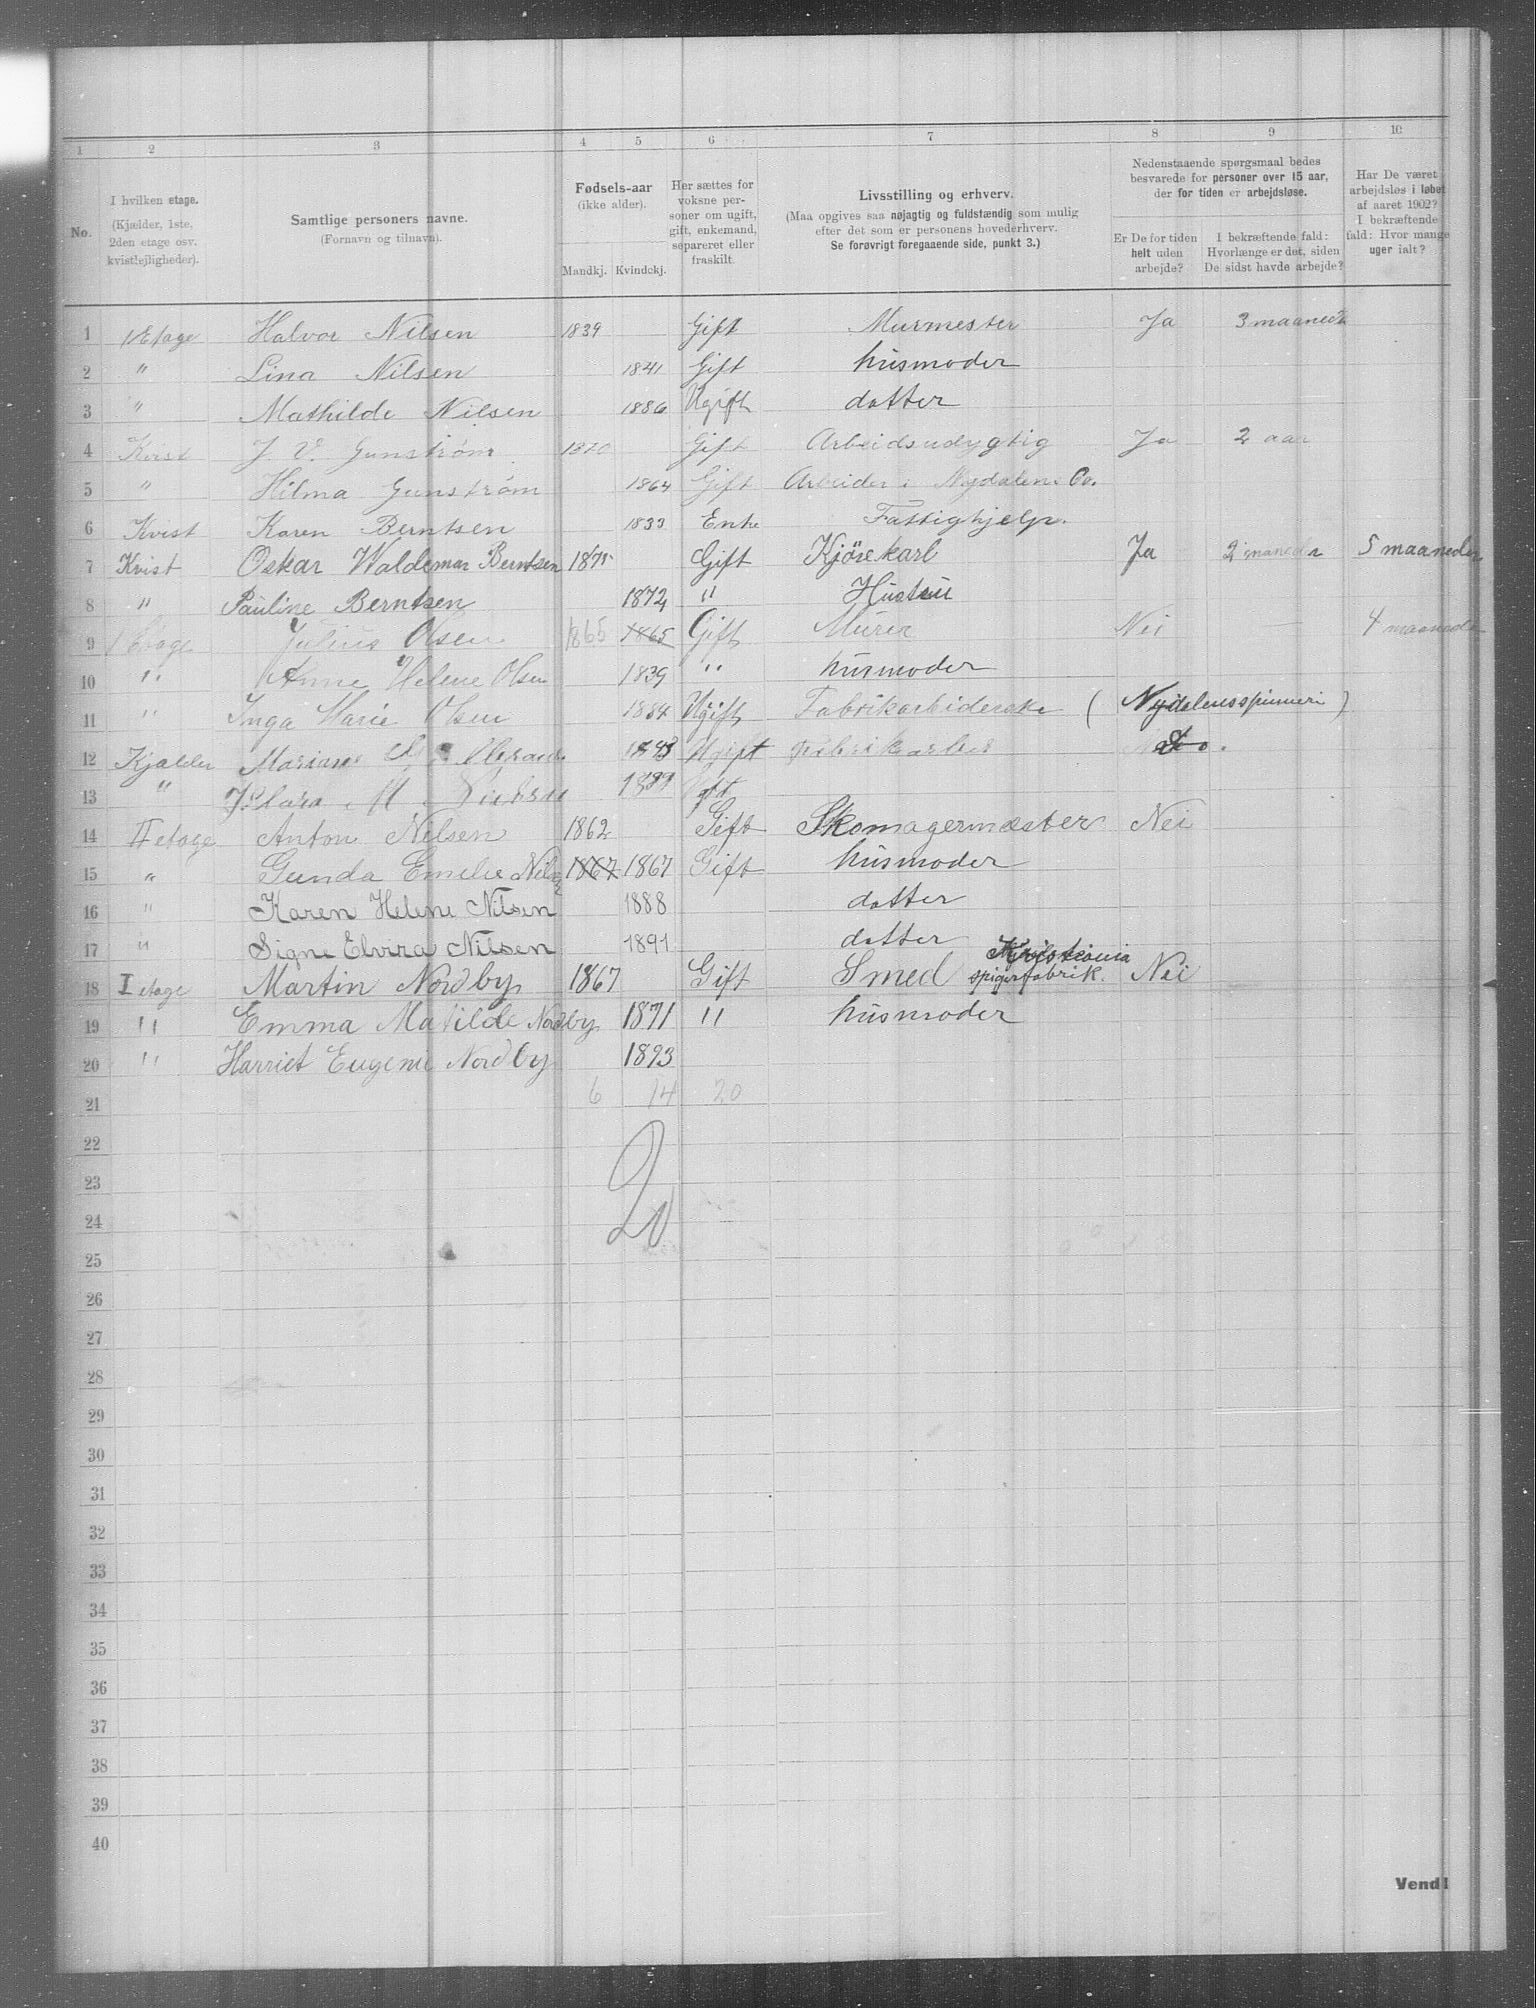 1 2 3 4 5 6 7 8 9 10
No.
I hvilken etage.
(Kjælder, 1ste,
2den etage osv.
kvistlejligheder).
Samtlige personers navne.
(Fornavn og tilnavn).
Fødsels-aar
(ikke alder).
Mandkj. Kvindekj.
Her sættes for
voksne per-
soner om ugift,
gift, enkemand,
separeret eller
fraskilt.
Livsstilling og erhverv.
(Maa opgives saa nøjagtig og fuldstændig som mulig
efter det som er personens hovederhverv.
Se forøvrigt foregaaende side, punkt 3.)
Nedenstaaende spørgsmaal bedes
besvarede for personer over 15 aar,
der for tiden er arbejdsløse.
Er De for tiden
helt uden
arbejde?
I bekræftende fald:
Hvorlænge er det, siden
De sidst havde arbejde?
Har De været
arbejdsløs i løbet
af aaret 1902?
I bekræftende
fald: Hvor mange
uger ialt?
1 1 Etage Halvor Nilsen 1839 Gift Murmester Ja 3 maaneder
2 " Lina Nilsen 1841 Gift husmoder
3 " Mathilde Nilsen 1886 Ugift datter
4 Kvist J. V. Gunstrøm 1870 Gift Arbeidsudygtig Ja 2 aar
5 " Hilma Gunstrøm 1864 Gift Arbeider i Nydalens Co.
6 Kvist Karen Berntsen 1833 Enke Fattighjelp.
7 Kvist Oskar Waldemar Berntsen 1875 Gift Kjørekarl Ja 2 maneder 5 maaneder
8 " Pauline Berntsen 1872 " Hustru
9 1 Etage Julius Olsen 1865 1865 Gift Murer Nei — 4 maaneder
10 " Anne Helene Olsen 1839 " husmoder
11 " Inga Marie Olsen 1884 Ugift Fabrikarbiderske ( Nydalensspinneri )
12 Kjælder 1843 Ugift
13 " M
14 II etage Anton Nilsen 1862 Gift Skomagermæster Nei
15 " Gunda Emelie Nilsen 1867 1867 Gift husmoder
16 " Karen Helene Nilsen 1888 datter
17 " Signe Elvira Nilsen 1891 datter
18 I etage Martin Nordby 1867 Gift Smed Kristiania spigerfabrik. Nei
19 " Emma Matilde Nordby 1871 " husmoder
20 " Harriet Eugenie Nordby 1893
21 6 14 20
22
20
23
24
25
26
27
28
29
30
31
32
33
34
35
36
37
38
39
40
Vend!